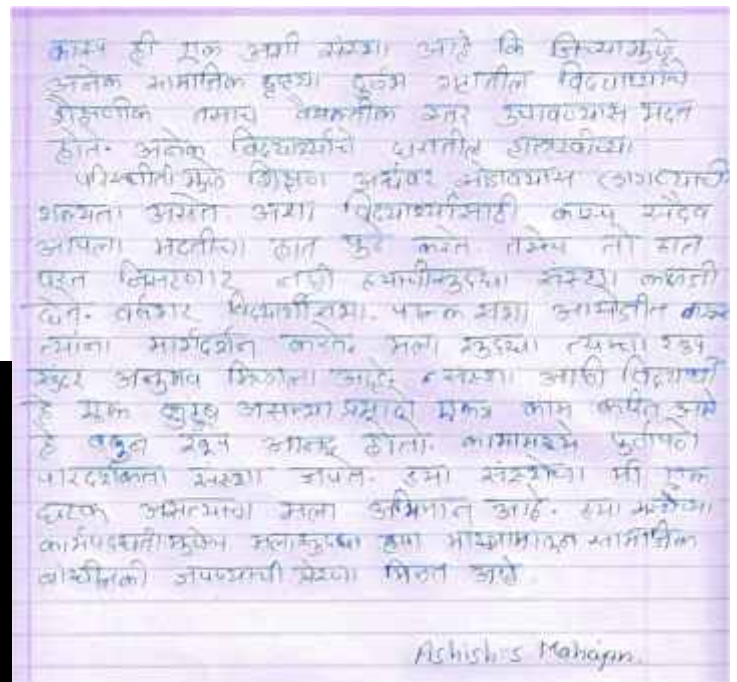 ही एक अशी संस्था आहे कि जिच्यामुळे
अनेक सामाजिक दृष्ट्या दुर्बल गटातील विद्यार्थ्यांचे
शैक्षणीक तसाच वैयक्तीक स्तर उंचावण्यास मदत
होते. अनेक विद्यार्थ्यांचे घरातील हालाखीच्या
परिस्थीतीमुळे शिक्षण अर्धवट सोडावयास लागण्याची
शक्यता असते. अशा विद्यार्थ्यांसाठी सदैव
आपला मदतीचा हात पुढे करते. तसेच तो हात
परत नाही ह्याचीसुद्धा संस्था काळजी
घेते. वर्षभर विद्यार्थीसभा, पालक सभा आयोजीत करून
त्यांना मार्गदर्शन करते. मला सुद्धा त्याचा खुप
सुंदर अनुभव मिळाला आहे. संस्था आणि विद्यार्थी
हे एक कुटुंब असल्या प्रमाणे एकत्र काम करीत आहे
हे बघून खुप आनंद होतो. कामामध्ये पुर्णपणे
पारदर्शकता संस्था जपते. ह्या संस्थेचा मी एक
घटक असल्याचा मला अभिमान आहे. ह्या संस्थेच्या
कार्यपद्धतीमुळेच मलासुद्धा ह्या माध्यमातून सामाजिक
बांधीलकी जपण्याची प्रेरणा मिळत आहे.
Ashish S Mahajan.